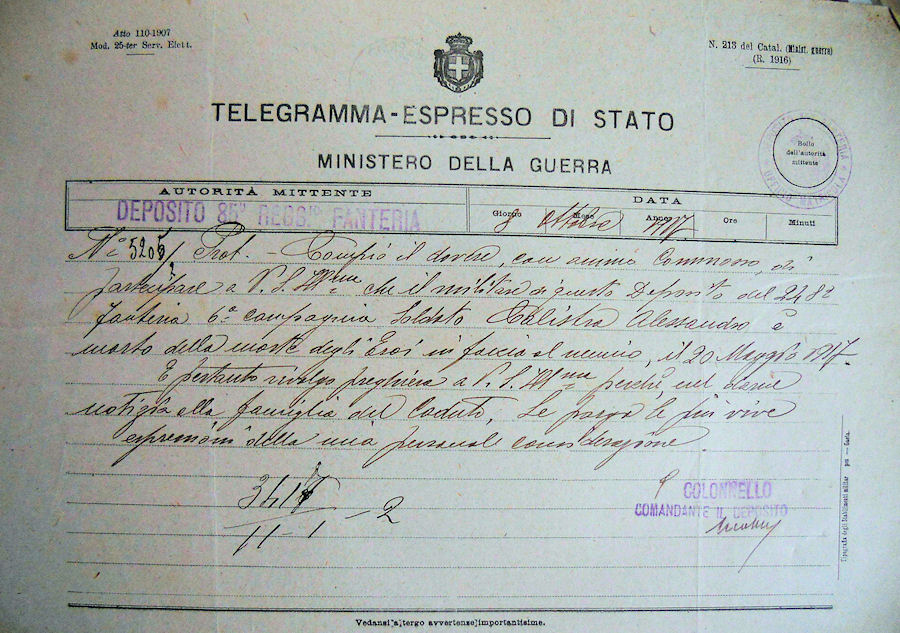 Atto 110-1907
Mod. 25-ter Serv. Elett.
N. 213 del Catal. (Minist. guerra)
(R. 1916)
TELEGRAMMA-ESPRESSO DI STATO
MINISTERO DELLA GUERRA
Bollo
dell'autorità
mittente
AUTORITÀ MITTENTE
DATA
DEPOSITO 85° REGG. FANTERIA
Giorno 8 Mese Ottobre Anno 1917 Ore Minuti
N° 5205 Prot. - Compio il dovere, con animo commosso, di
partecipare a V. S. Ill.ma che il militare di questo Deposito del 248°
fanteria 6a compagnia Soldato Calistra Alessandro è
morto della morte degli Eroi in faccia al nemico, il 20 Maggio 1917.
E pertanto rivolgo preghiera a V. S. Ill.ma perchè, nel darne
notizia alla famiglia del Caduto, Le porga le più vive
espressioni della mia personale considerazione
341
11-1 - 2
COLONNELLO
COMANDANTE IL DEPOSITO
Vedansi a tergo avvertenze importantissime.